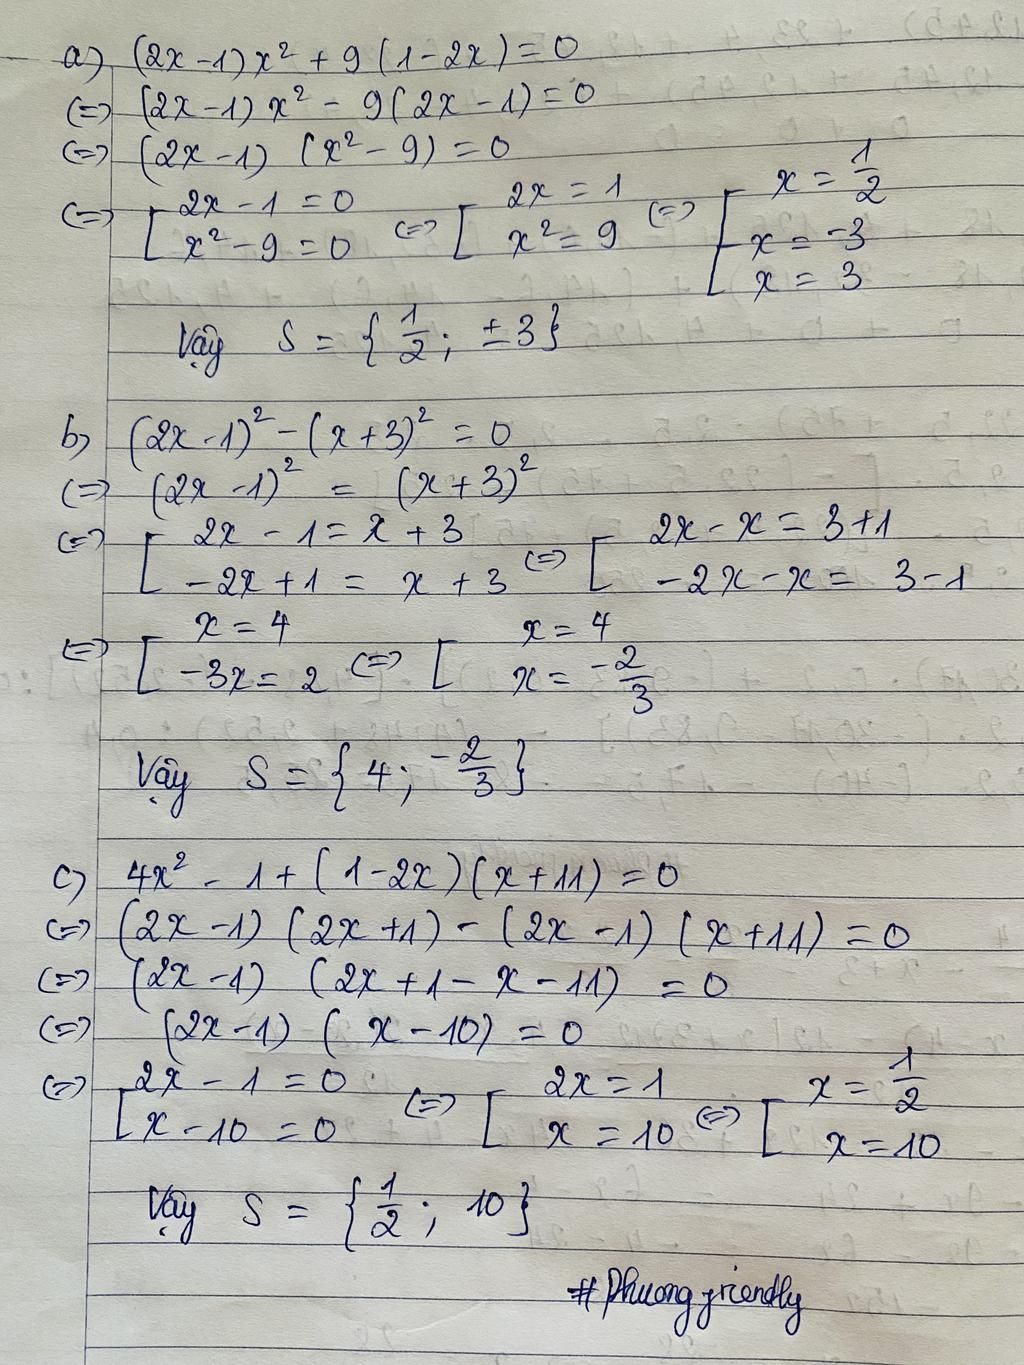 a) (2x-1)x² + 9(1-2x) = 0
(=) (2x-1)x² - 9(2x-1) = 0
(=) (2x-1) (x²-9) = 0
(=) [ 2x-1 = 0 (=) [ 2x = 1 (=) [ x = 1/2
x²-9 = 0 x² = 9 x = -3
x = 3
Vậy S = {1/2; ±3}
b) (2x-1)² - (x+3)² = 0
(=) (2x-1)² = (x+3)²
(=) [ 2x - 1 = x + 3 (=) [ 2x - x = 3+1
-2x+1 = x + 3 -2x-x = 3-1
(=) [ x = 4 (=) [ x = 4
-3x = 2 x = -2/3
Vậy S = {4; -2/3}
c) 4x² - 1 + (1-2x)(x+11) = 0
(=) (2x-1) (2x+1) - (2x-1) (x+11) = 0
(=) (2x-1) (2x+1-x-11) = 0
(=) (2x-1) (x-10) = 0
(=) [ 2x - 1 = 0 (=) [ 2x = 1 (=) [ x = 1/2
x - 10 = 0 x = 10 x = 10
Vậy S = {1/2; 10}
#Phuongfriendly